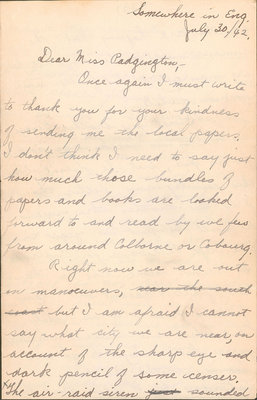 Somewhere in Eng.
July 30/42.
Dear Miss Padgington,-
Once again I must write
to thank you for your kindness
of sending me the local papers.
I don't think I need to say just
how much those bundles of
papers and books are looked
forward to and read by we few
from around Colborne or Cobourg.
Right now we are out
in manoeuvers, near the south
coast but I am afraid I cannot
say what city we are near, on
account of the sharp eye and
dark pencil of some censer.
The air-raid siren just sounded